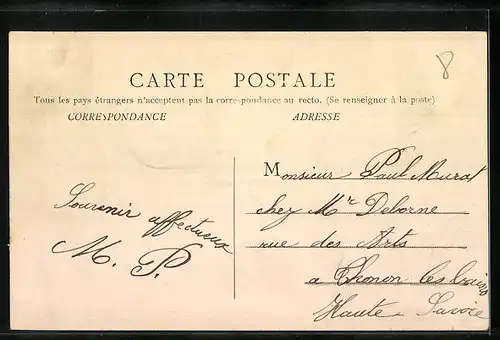 8
CARTE POSTALE
Tous les pays étrangers n'acceptent pas la correspondance au recto. (Se renseigner à la poste)
CORRESPONDANCE
ADRESSE
Souvenir affectueux
M. P.
Monsieur Paul Murat
chez Mr Deborne
rue des Arts
a Thonon les bains
Haute-Savoie